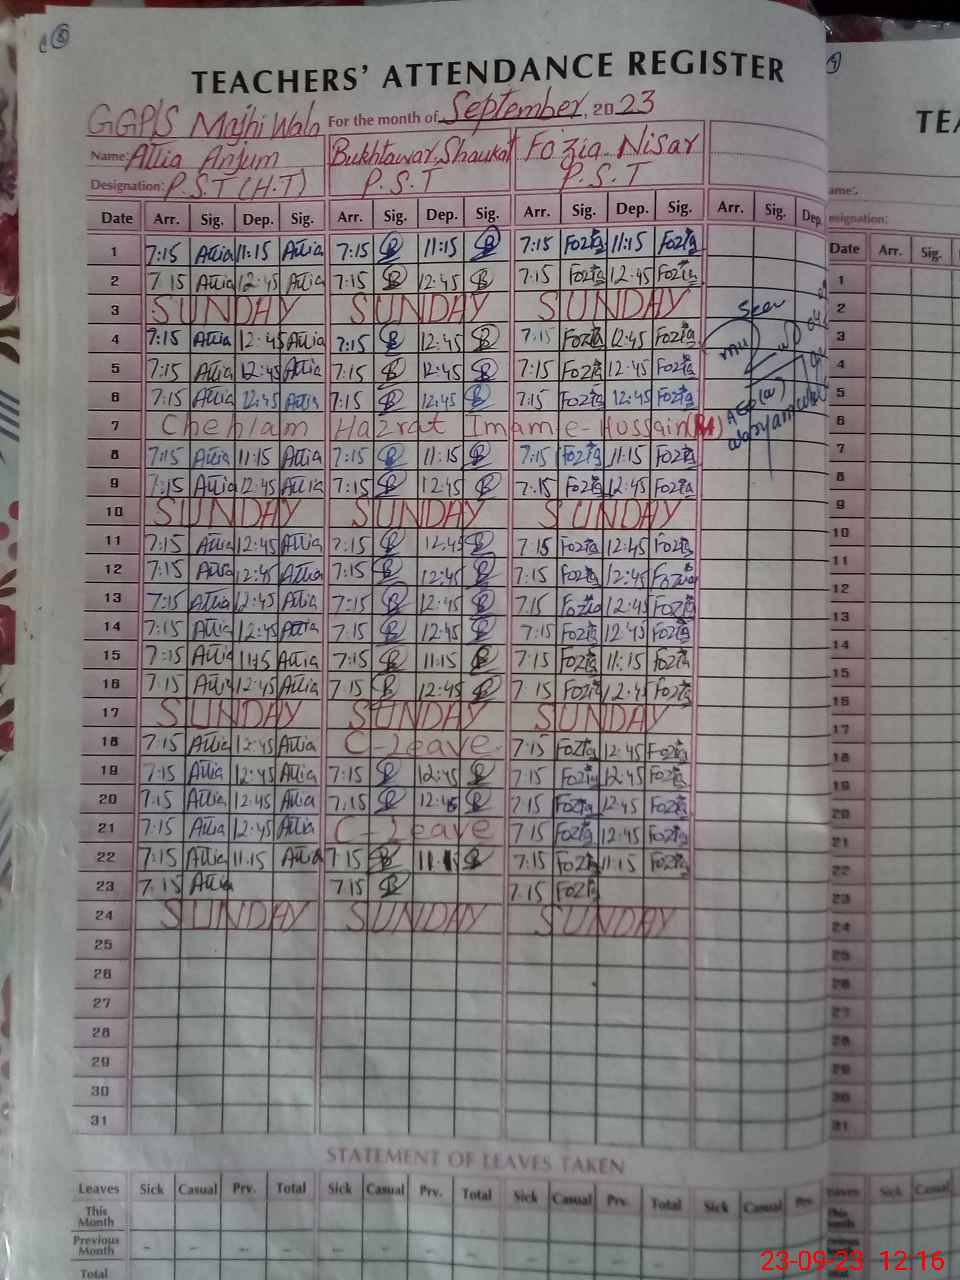 8
TEACHERS' ATTENDANCE REGISTER
GGP/S Majhi Wala For the month of September, 2023
Name: Attia Anjum Bukhtawar Shaukat Fozia Nisar
Designation: P.S.T (H.T) P.S.T P.S.T
Date Arr. Sig. Dep. Sig. Arr. Sig. Dep. Sig. Arr. Sig. Dep. Sig. Arr. Sig. Dep.
1 7:15 Attia 11:15 Attia 7:15 11:15 7:15 Fozia 11:15 Fozia
2 7:15 Attia 12:45 Attia 7:15 12:45 7:15 Fozia 12:45 Fozia
3 SUNDAY SUNDAY SUNDAY
4 7:15 Attia 12:45 Attia 7:15 12:45 7:15 Fozia 12:45 Fozia
5 7:15 Attia 12:45 Attia 7:15 12:45 7:15 Fozia 12:45 Fozia
6 7:15 Attia 12:45 Attia 7:15 12:45 7:15 Fozia 12:45 Fozia
7 Chehlam Hazrat Imam-e-Hussain
8 7:15 Attia 11:15 Attia 7:15 11:15 7:15 Fozia 11:15 Fozia
9 7:15 Attia 12:45 Attia 7:15 12:45 7:15 Fozia 12:45 Fozia
10 SUNDAY SUNDAY SUNDAY
11 7:15 Attia 12:45 Attia 7:15 12:45 7:15 Fozia 12:45 Fozia
12 7:15 Attia 12:45 Attia 7:15 12:45 7:15 Fozia 12:45 Fozia
13 7:15 Attia 12:45 Attia 7:15 12:45 7:15 Fozia 12:45 Fozia
14 7:15 Attia 12:45 Attia 7:15 12:45 7:15 Fozia 12:45 Fozia
15 7:15 Attia 11:15 Attia 7:15 11:15 7:15 Fozia 11:15 Fozia
16 7:15 Attia 12:45 Attia 7:15 12:45 7:15 Fozia 12:45 Fozia
17 SUNDAY SUNDAY SUNDAY
18 7:15 Attia 12:45 Attia C-Leave 7:15 Fozia 12:45 Fozia
19 7:15 Attia 12:45 Attia 7:15 12:45 7:15 Fozia 12:45 Fozia
20 7:15 Attia 12:45 Attia 7:15 12:45 7:15 Fozia 12:45 Fozia
21 7:15 Attia 12:45 Attia C-Leave 7:15 Fozia 12:45 Fozia
22 7:15 Attia 11:15 Attia 7:15 11:15 7:15 Fozia 11:15 Fozia
23 7:15 Attia 7:15 7:15 Fozia
24 SUNDAY SUNDAY SUNDAY
25
26
27
28
29
30
31
Seen
STATEMENT OF LEAVES TAKEN
Leaves Sick Casual Prv. Total Sick Casual Prv. Total Sick Casual Prv. Total Sick Casual Prv.
This Month
Previous Month
Total
9
TEA
ame:
esignation:
Date Arr. Sig.
1
2
3
4
5
6
7
8
9
10
11
12
13
14
15
16
17
18
19
20
21
22
23
24
25
26
27
28
29
30
31
Sick Casual
23-09-23 12:16